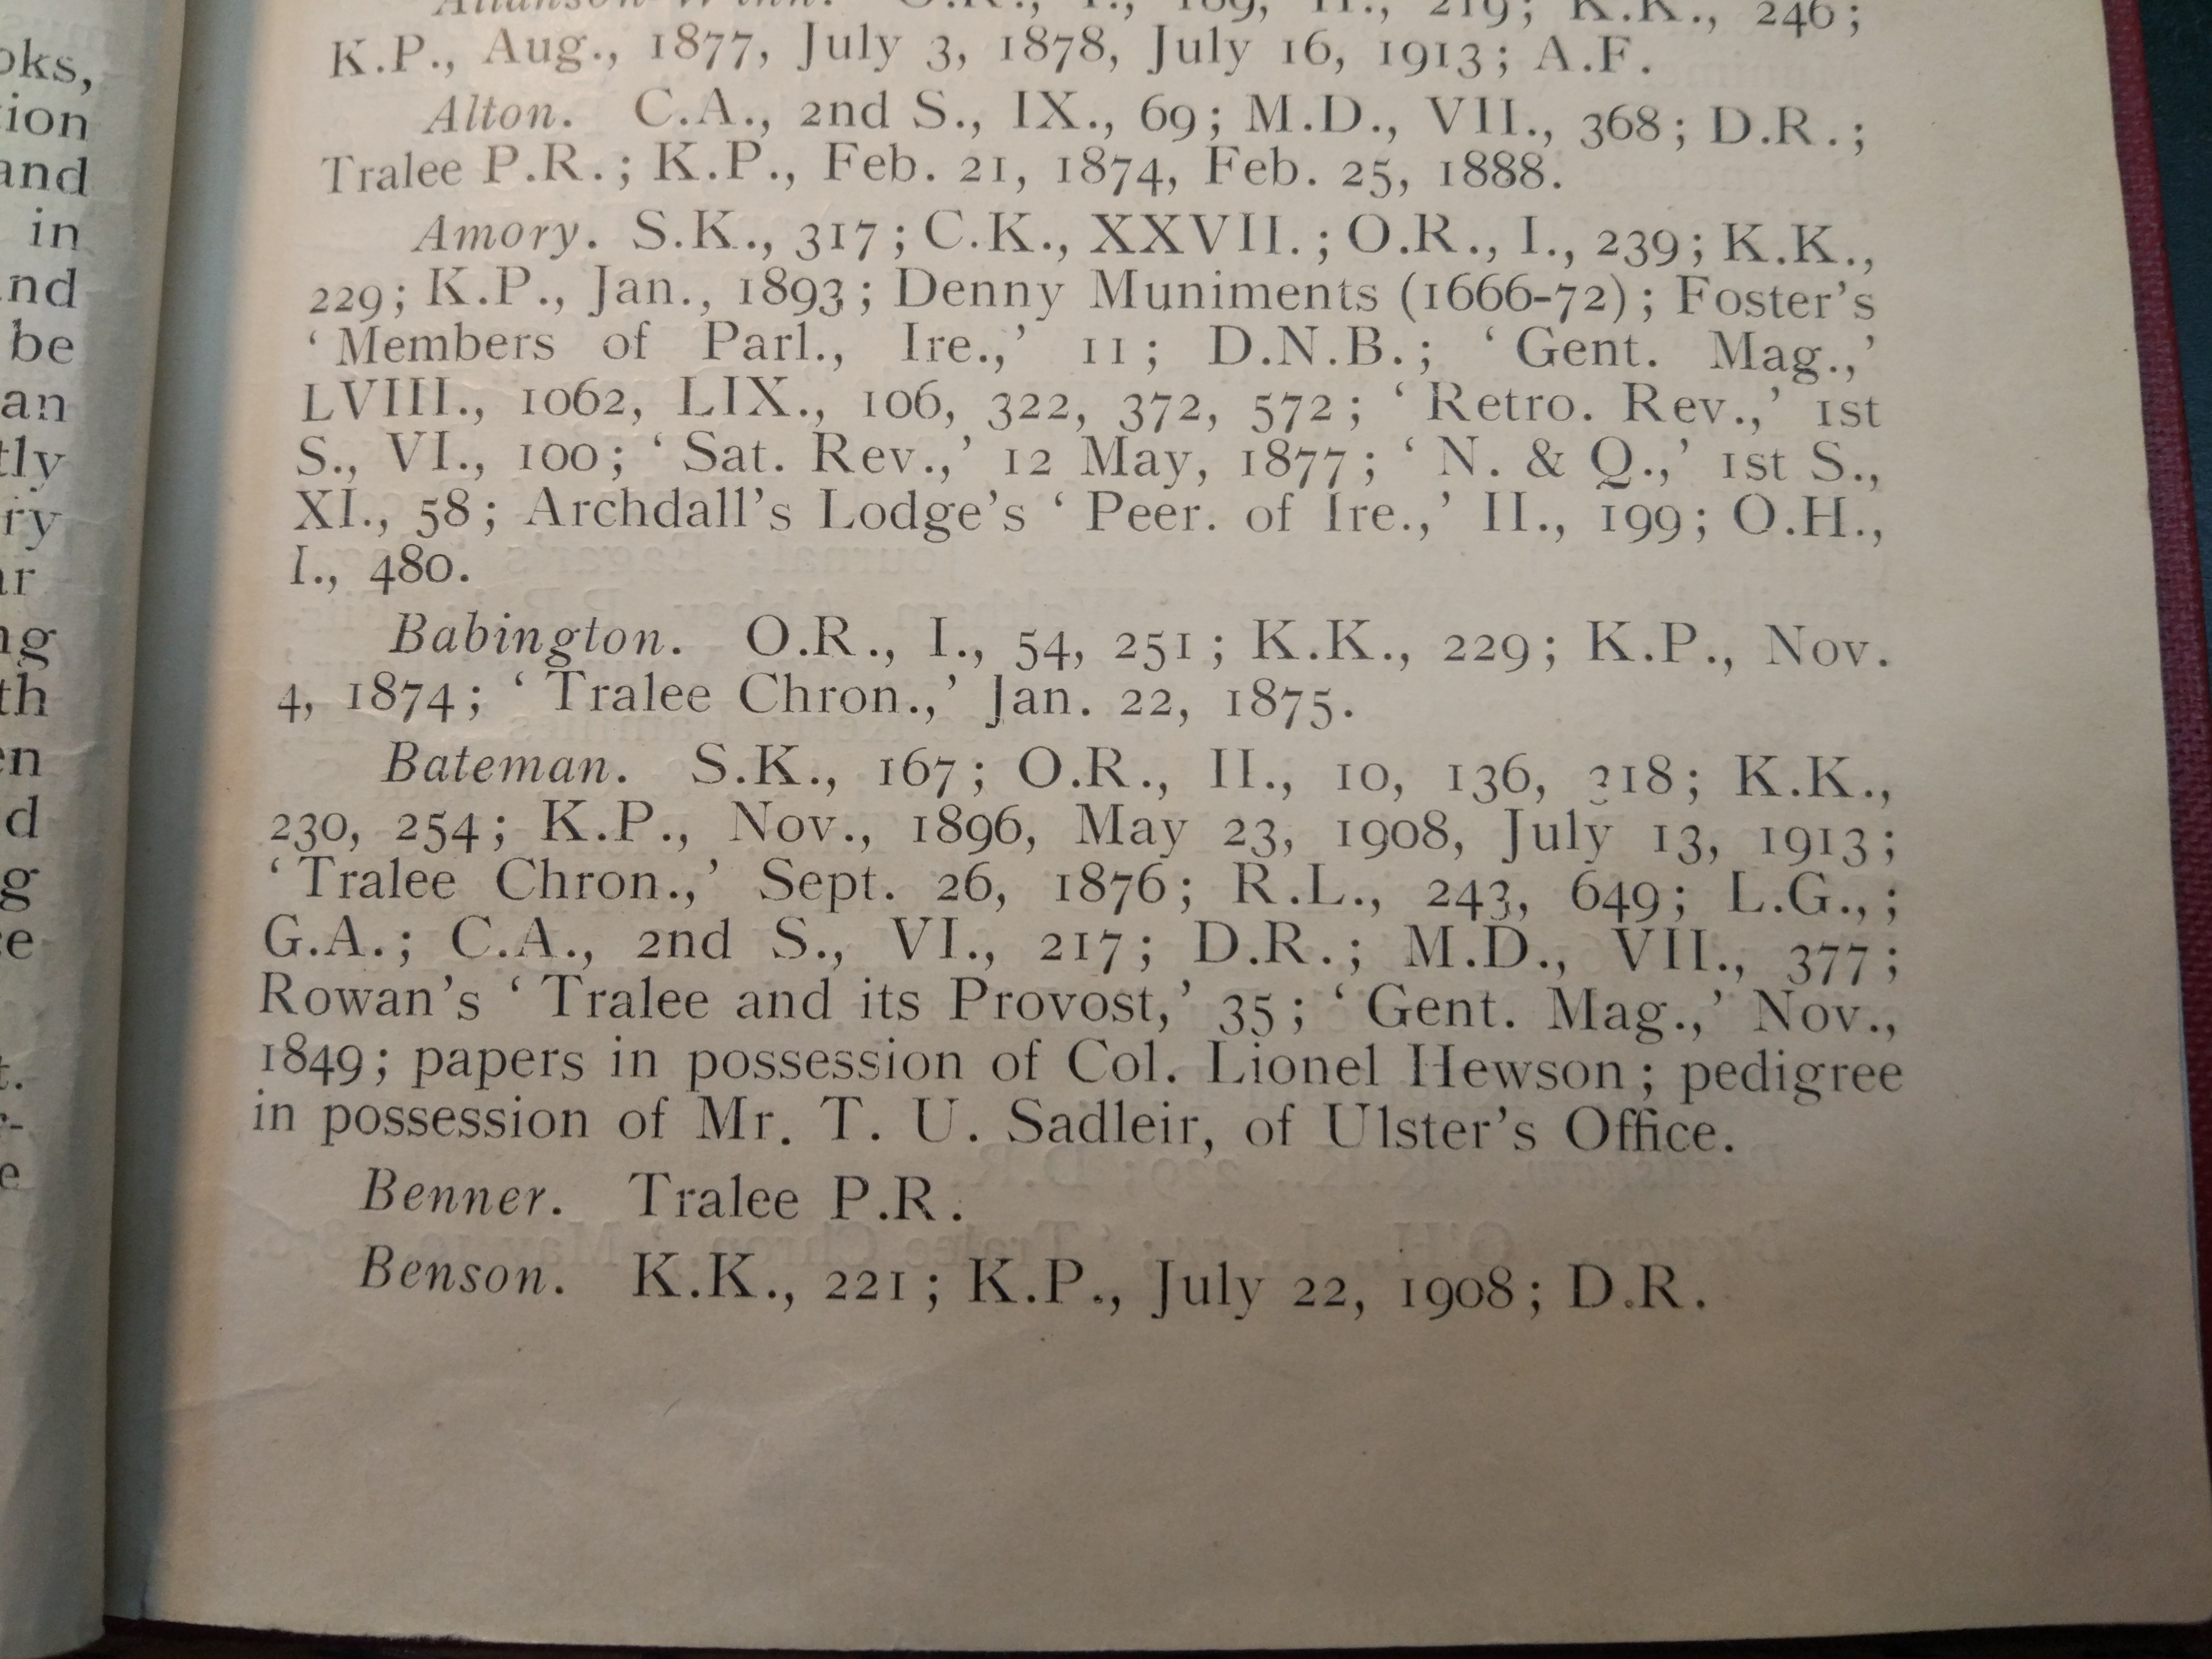 oks,
tion
and
in
nd
be
an
tly
ry
ar
ng
th
en
d
g
e
t.
r-
e
Allanson-Winn. O.R., I., 189, II., 219; K.K., 246;
K.P., Aug., 1877, July 3, 1878, July 16, 1913; A.F.
Alton. C.A., 2nd S., IX., 69; M.D., VII., 368; D.R.;
Tralee P.R.; K.P., Feb. 21, 1874, Feb. 25, 1888.
Amory. S.K., 317; C.K., XXVII.; O.R., I., 239; K.K.,
229; K.P., Jan., 1893; Denny Muniments (1666-72); Foster's
‘Members of Parl., Ire.,’ 11; D.N.B.; ‘Gent. Mag.,’
LVIII., 1062, LIX., 106, 322, 372, 572; ‘Retro. Rev.,’ 1st
S., VI., 100; ‘Sat. Rev.,’ 12 May, 1877; ‘N. & Q.,’ 1st S.,
XI., 58; Archdall's Lodge's ‘Peer. of Ire.,’ II., 199; O.H.,
I., 480.
Babington. O.R., I., 54, 251; K.K., 229; K.P., Nov.
4, 1874; ‘Tralee Chron.,’ Jan. 22, 1875.
Bateman. S.K., 167; O.R., II., 10, 136, 318; K.K.,
230, 254; K.P., Nov., 1896, May 23, 1908, July 13, 1913;
‘Tralee Chron.,’ Sept. 26, 1876; R.L., 243, 649; L.G.,;
G.A.; C.A., 2nd S., VI., 217; D.R.; M.D., VII., 377;
Rowan's ‘Tralee and its Provost,’ 35; ‘Gent. Mag.,’ Nov.,
1849; papers in possession of Col. Lionel Hewson; pedigree
in possession of Mr. T. U. Sadleir, of Ulster's Office.
Benner. Tralee P.R.
Benson. K.K., 221; K.P., July 22, 1908; D.R.